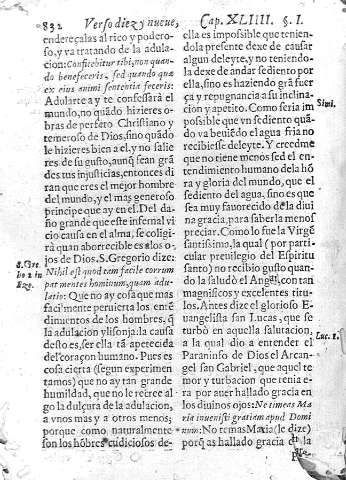 832 Verso diez y nueue, Cap. XLIIII. §. I.
endereçalas al rico y podero-
so, y va tratando de la adula-
cion: Confitebitur tibi, non quan-
do benefeceris, sed quando quæ
ex eius animi sententia feceris:
Adularte a y te confessará el
mundo, no quãdo hizieres o-
bras de perfeto Christiano y
temeroso de Dios, sino quãdo
le hizieres bien a el, y no salie
res de su gusto, aunq̃ sean grã
des tus injusticias, entonces di
ran que eres el mejor hombre
del mundo, y el mas generoso
principe que ay en el. Del da-
ño grande que este infernal vi
cio causa en el alma, se coligi-
rà quan aborrecible es a los o-
jos de Dios. S. Gregorio dize:
Nihil est quod tam facile corrum
pat mentes hominum, quam adu-
latio: Que no ay cosa que mas
facilmente peruierta los ente
dimientos de los hombres, q̃
la adulacion y lisonja: la causa
desto es, ser ella tã apetecida
del coraçon humano. Pues es
cosa cierta (segun experimen
tamos) que no ay tan grande
humildad, que no le recree al-
go la dulçura de la adulacion,
a vnos mas y a otros menos;
porque como naturalmente
son los hõbres cudiciosos de-
S. Gre.
lo 2 in
Eze.
ella es impossible que tenien-
dola presente dexe de causar
algun deleyte, y no teniendo-
la dexe de andar sediento por
ella, sino es haziendo grã fuer
ça y repugnancia a su inclina-
cion y apetito. Como seria im
possible que vn sediento quã-
do va beuiẽdo el agua fria no
recibiesse deleyte. Y creedme
que no tiene menos sed el en-
tendimiento humano de la hõ
ra y gloria del mundo, que el
sediento del agua, sino es que
sea muy fauorecido de la diui
na gracia, para saberla menos
preciar. Como lo fue la Virgẽ
santissima, la qual (por parti-
cular preuilegio del Espiritu
santo) no recibio gusto quan-
do la saludò el Angel, con tan
magnificos y excelentes titu-
los. Antes dize el glorioso E-
uangelista san Lucas, que se
turbò en aquella salutacion,
a la qual dio a entender el
Paraninfo de Dios el Arcan-
gel san Gabriel, que aquel te-
mor y turbacion que tenia e-
ra por auer hallado gracia en
los diuinos ojos: Ne timeas Ma
ria inuenisti gratiam apud Domi
num: No temas Maria (le dize)
porq̃ as hallado gracia en la
Simi.
Luc. 1.